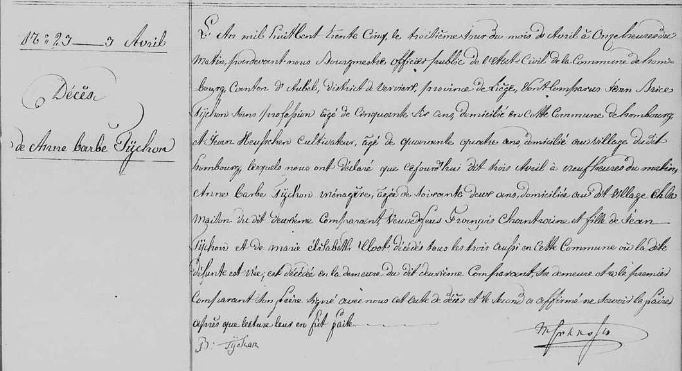 N° 23 — 3 Avril
Décès
de Anne barbe Tÿchon
L'An mil huitCent trente Cinq, le troisième jour du mois de Avril à Onze heures du
Matin, pardevant nous Bourgmestre officier public de l'Etat-Civil de la Commune de hom-
bourg, Canton d'Aubel, district de Verviers, province de Liège, sont Comparus Jean
Tÿchon sans profession âgé de Cinquante Six ans, domicilié en Cette Commune de hombourg
et Jean Cultivateur, âgé de quarante quatre ans domicilié au village du dit
hombourg, lesquels nous ont déclaré que cejourd'hui dit trois Avril à neuf heures du matin,
Anne Barbe Tÿchon ménagère, âgée de soixante deux ans, domiciliée au dit village en la
Maison du dit deuxième Comparant, Veuve de feu François Chantraine et fille de Jean
Tÿchon et de marie élisabeth décédés tous les trois aussi en Cette Commune où la dite
défunte est née, est décédée en la demeure du dit deuxième Comparant, sa demeure et a le premier
Comparant son frère signé avec nous cet acte de décès et le second a affirmé ne savoir le faire
après que lecture leur en fut faite.
B: Tÿchon